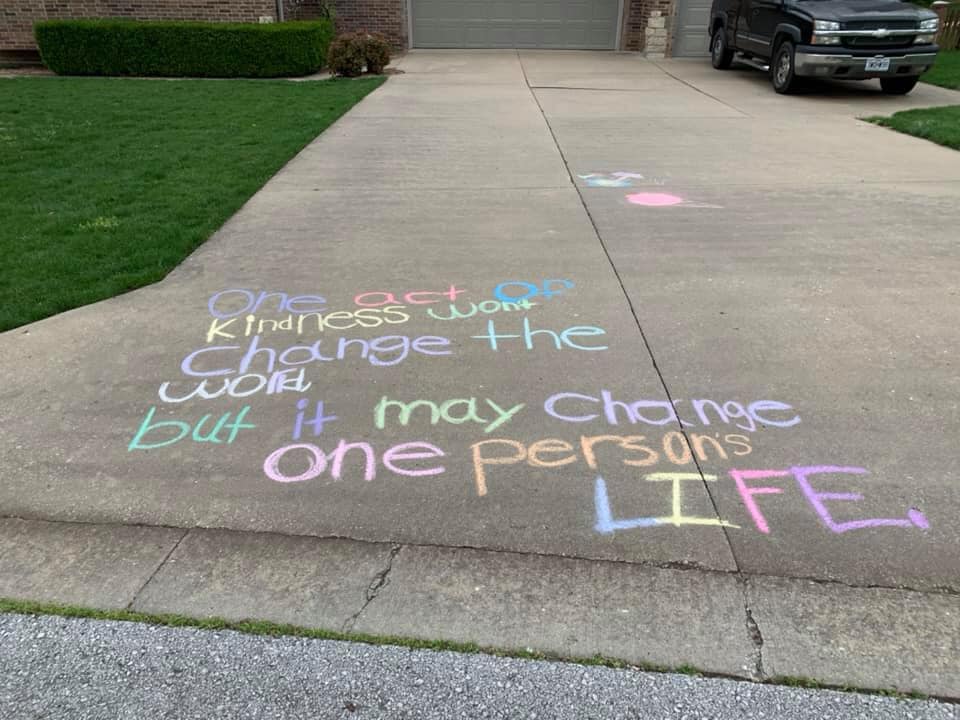 One act OF
Kindness wont
Change the
world
but it may Change
one person's
LIFE.